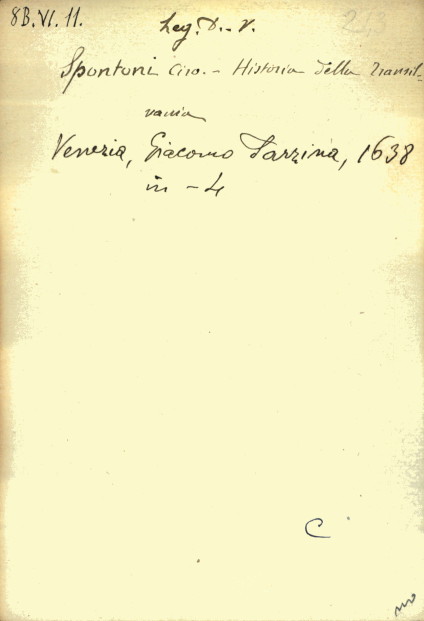 8B.VI.11.
Leg. D.-V.
213
Spontoni Ciro. - Historia della Transil-
vania
Venezia, Giacomo Sarzina, 1638
in - 4
C